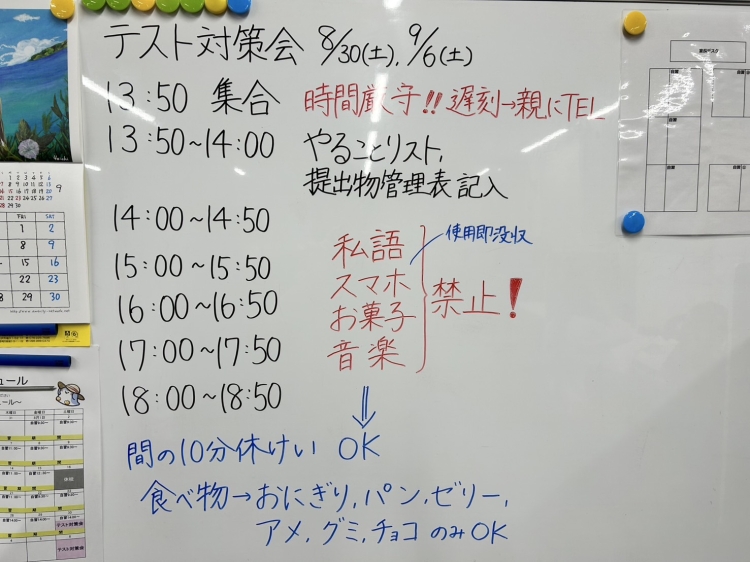 テスト対策会 8/30(土), 9/6(土)
13:50 集合 時間厳守!! 遅刻→親にTEL
13:50~14:00 やることリスト,
提出物管理表 記入
14:00~14:50
15:00~15:50
16:00~16:50
17:00~17:50
18:00~18:50
私語
スマホ 使用即没収
お菓子
音楽
禁止!
間の10分休けい OK
食べ物→おにぎり,パン,ゼリー,
アメ,グミ,チョコ のみOK
9
FRI SAT
1 2
8 9
15 16
22 23
28 29 30
ュール
テスト対策会
テスト対策会